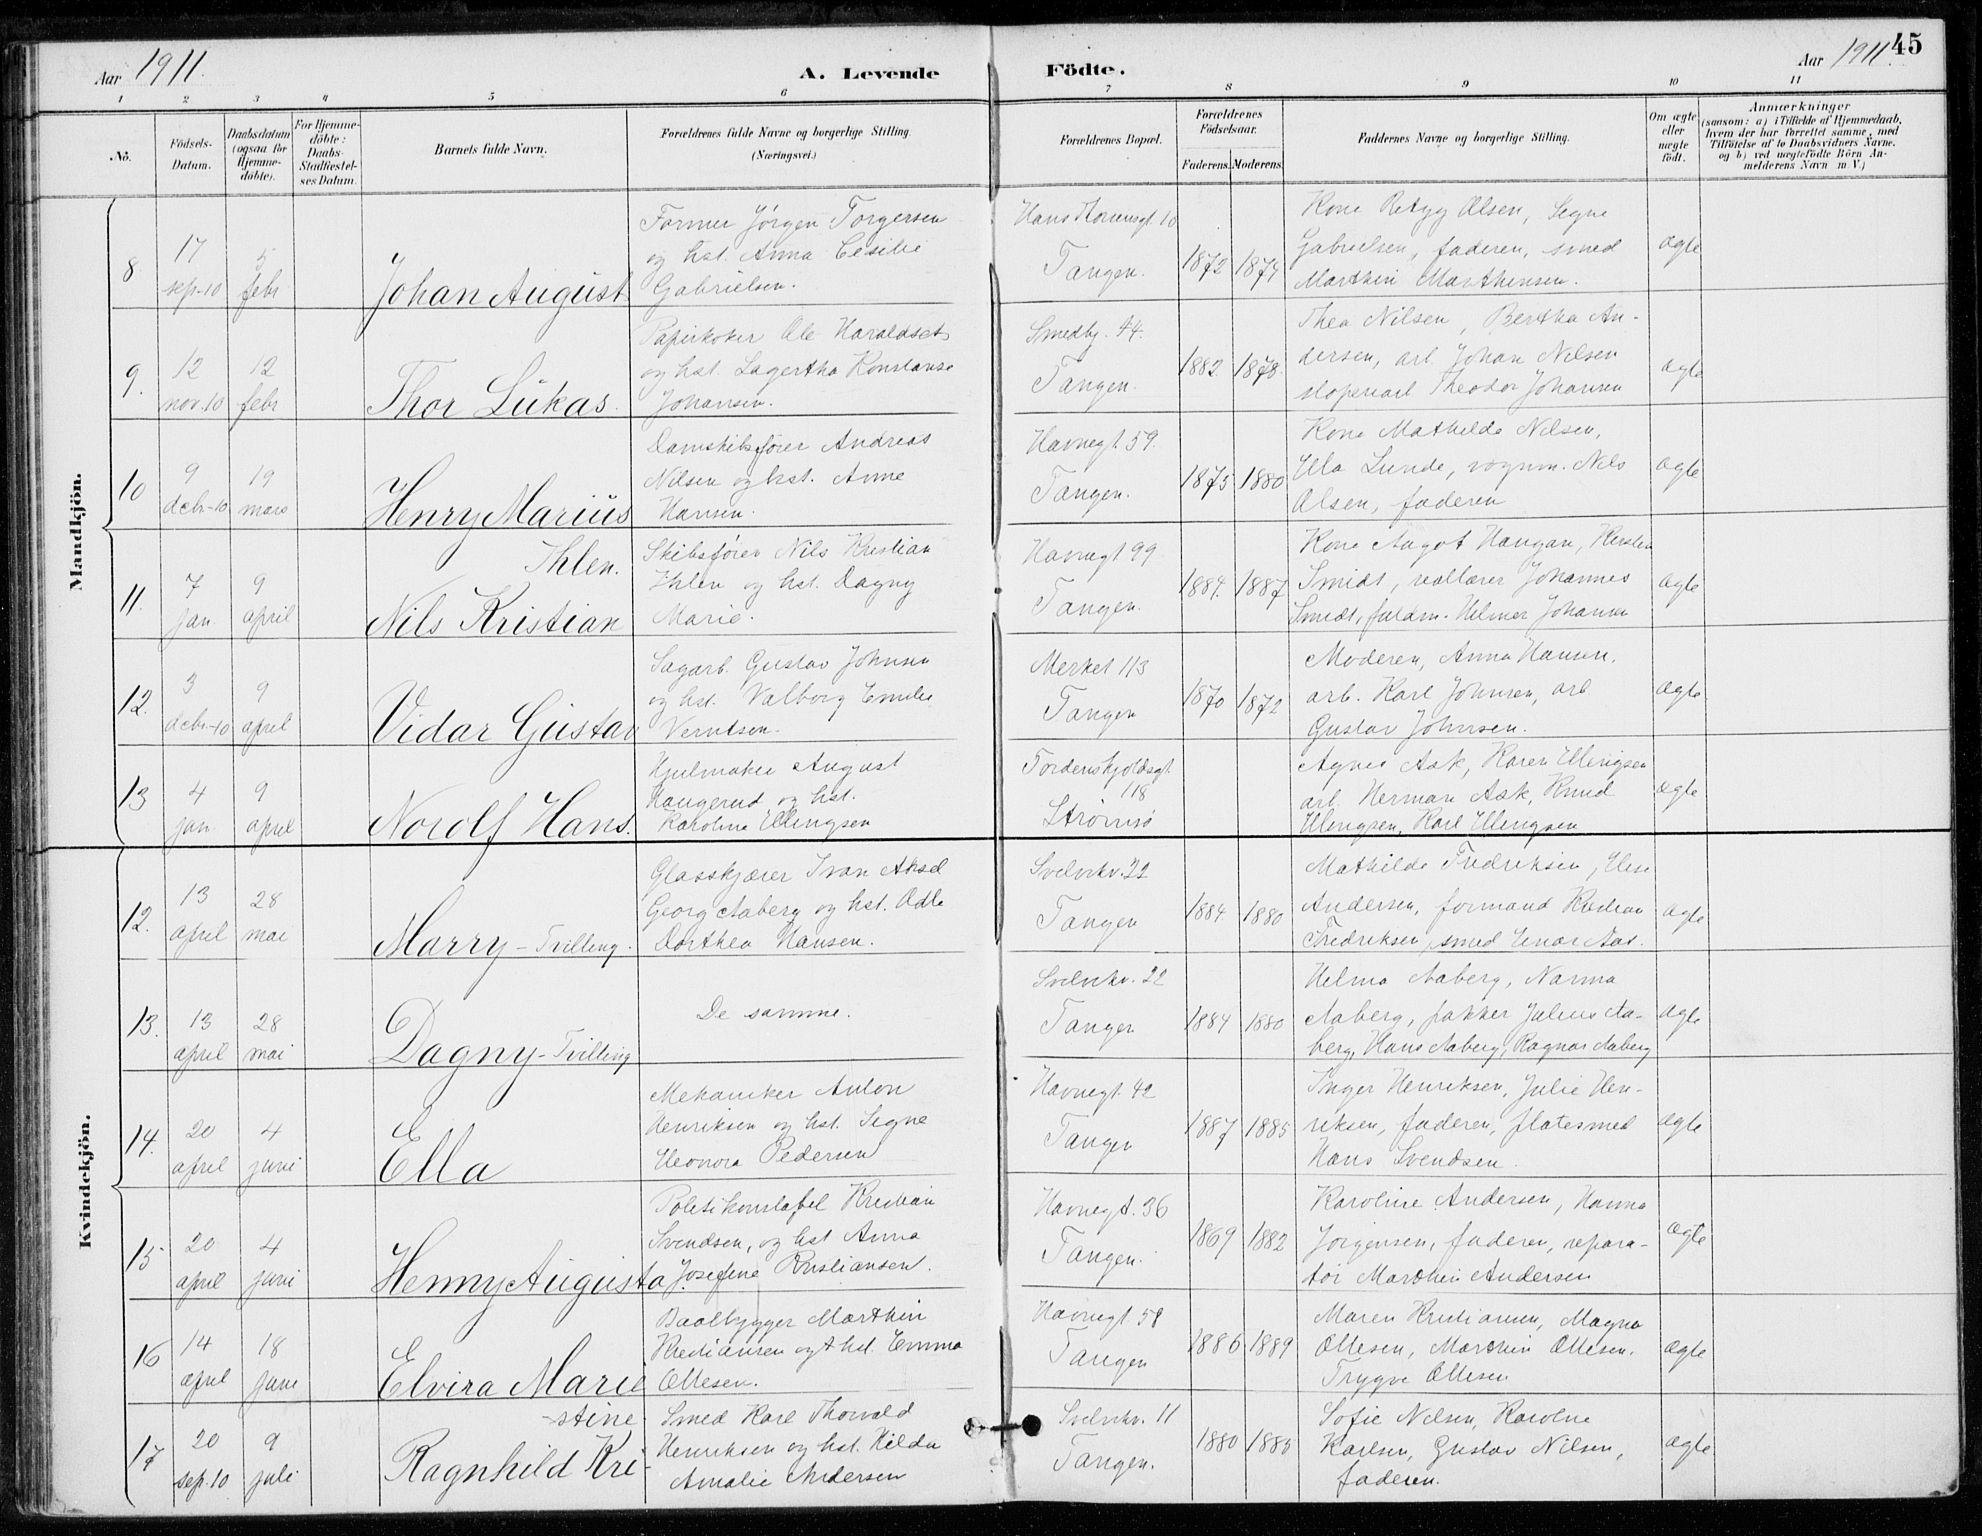 Aar 1911.
A. Levende
Födte.
Aar 1911.
45
1 2 3 4 5 6 7 8 9 10 11
No.
Födsels-
Datum.
Daabsdatum
(ogsaa for
Hjemme-
döbte).
For Hjemme-
döbte:
Daabs-
Stadfæstel-
ses Datum.
Barnets fulde Navn.
Forældrenes fulde Navne og borgerlige Stilling.
(Næringsvei.)
Forældrenes Bopæl.
Forældrenes
Födselsaar.
Faderens.
Moderens.
Faddernes Navne og borgerlige Stilling.
Om ægte
eller
uægte
födt.
Anmærkninger
(saasom: a) i Tilfælde af Hjemmedaab,
hvem der har forrettet samme, med
Tilföielse af to Daabsvidners Navne,
og b) ved uægtefödte Börn An-
melderens Navn m V.)
Mandkjön.
8
17
sep.-10
5
febr
Johan August
Former Jörgen Torgersen
og hst. Anna Cesilie
Gabrielsen.
10
Tangen.
1872 1874
Kone Olsen, Segne
Gabrielsen, faderen, smed
Marthin Marthinsen.
ægte
9.
12
nov.10
12
febr
Thor Lukas.
Papirkoker Ole Haraldset
og hst. Lagertha Konstanse
Johansen.
Smedby. 44.
Tangen.
1882. 1878.
Thea Nilsen, Bertha An-
dersen, arb Johan Nilsen
Theodor Johansen
ægte
10
9
debr-10
19
mars
Henry Marius
Damskibsfører Andreas
Nilsen og hst. Anne
Hansen.
Havnegt. 59.
Tangen.
1875 1880
Kone Mathilde Nilsen,
Ella Lunde, vognm. Nils
Olsen, faderen
ægte
11.
7
jan
9
april
Ihlen.
Nils Kristian
Skibsfører Nils Kristian
Ihlen og hst. Dagny
Marie.
Havnegt 99
Tangen.
1884. 1887
Kone Aagot Haugan, Kirsten
Smidt, Johannes
Smidt, fuldm. Helmer Johansen
ægte
12.
3
debr-10
9
april
Vidar Gustav
Sagarb. Gustav Johnsen
og hst. Valborg Emilie
Verntsen.
Merket 113
Tangen
1870 1872
Moderen, Anna Hansen,
arb. Karl Johnsen, arb
Gustav Johnsen.
ægte
13
4
jan
9
april
Norolf Hans.
Hjulmaker August
Haugerud og hst.
Karoline Ellingsen
Tordenskjoldsgt.
118
Strømsö
Agnes Ask, Karen Ellingsen
arb. Herman Ask, Knud
Ellingsen, Karl Ellingsen
ægte
Kvindekjön.
12.
13
april
28
mai
Marry - Tvilling.
Glasskjærer Ivan Aksel
Georg Aaberg og hst. Odle
Dorthea Hansen.
Svelvikv. 22
Tangen
1884 1880
Mathilde Fredriksen, Elise
Andersen, formand
Fredriksen, smed Einar Aas.
ægte
13.
13
april
28
mai
Dagny - Tvilling
De samme.
Svelvikv. 22
Tangen
1884 1880
Helma Aaberg, Nanna
Aaberg, pakker Julius Aa-
berg, Hans Aaberg, Ragnar Aaberg
ægte
14.
20
april
4
juni
Ella
Mekaniker Anton
Henriksen og hst. Segne
Eleonora Pedersen
Havnegt. 42
Tangen
1887 1885
Inger Henriksen, Julie Hen-
riksen, faderen, platesmed
Hans Svendsen.
ægte
15
20
april
4
juni
Henny Augusta
Politikonstabel Kristian
Svendsen, og hst Anna
Josefine Kristiansen.
Havnegt. 36
Tangen.
1869 1882
Karoline Andersen, Hanna
Jörgensen, faderen, repara-
tör Marthin Andersen
ægte
16
14
april
18
juni
Elvira Marie
Baatbygger Marthin
Kristiansen og hst. Emma
Ottesen.
Havnegt 58
Tangen
1886 1889
Maren Kristiansen, Magna
Ottesen, Marthin Ottesen.
Trygve Ottesen
ægte
17
20
sep.10
9
juli
-stine
Ragnhild Kri-
Smed Karl Thorvald
Henriksen og hst. Hilda
Amalie Andersen
Svelvikv. 11
Tangen.
1880 1885
Sofie Nilsen, Karoline
Karlsen, Gustav Nilsen,
faderen.
ægte